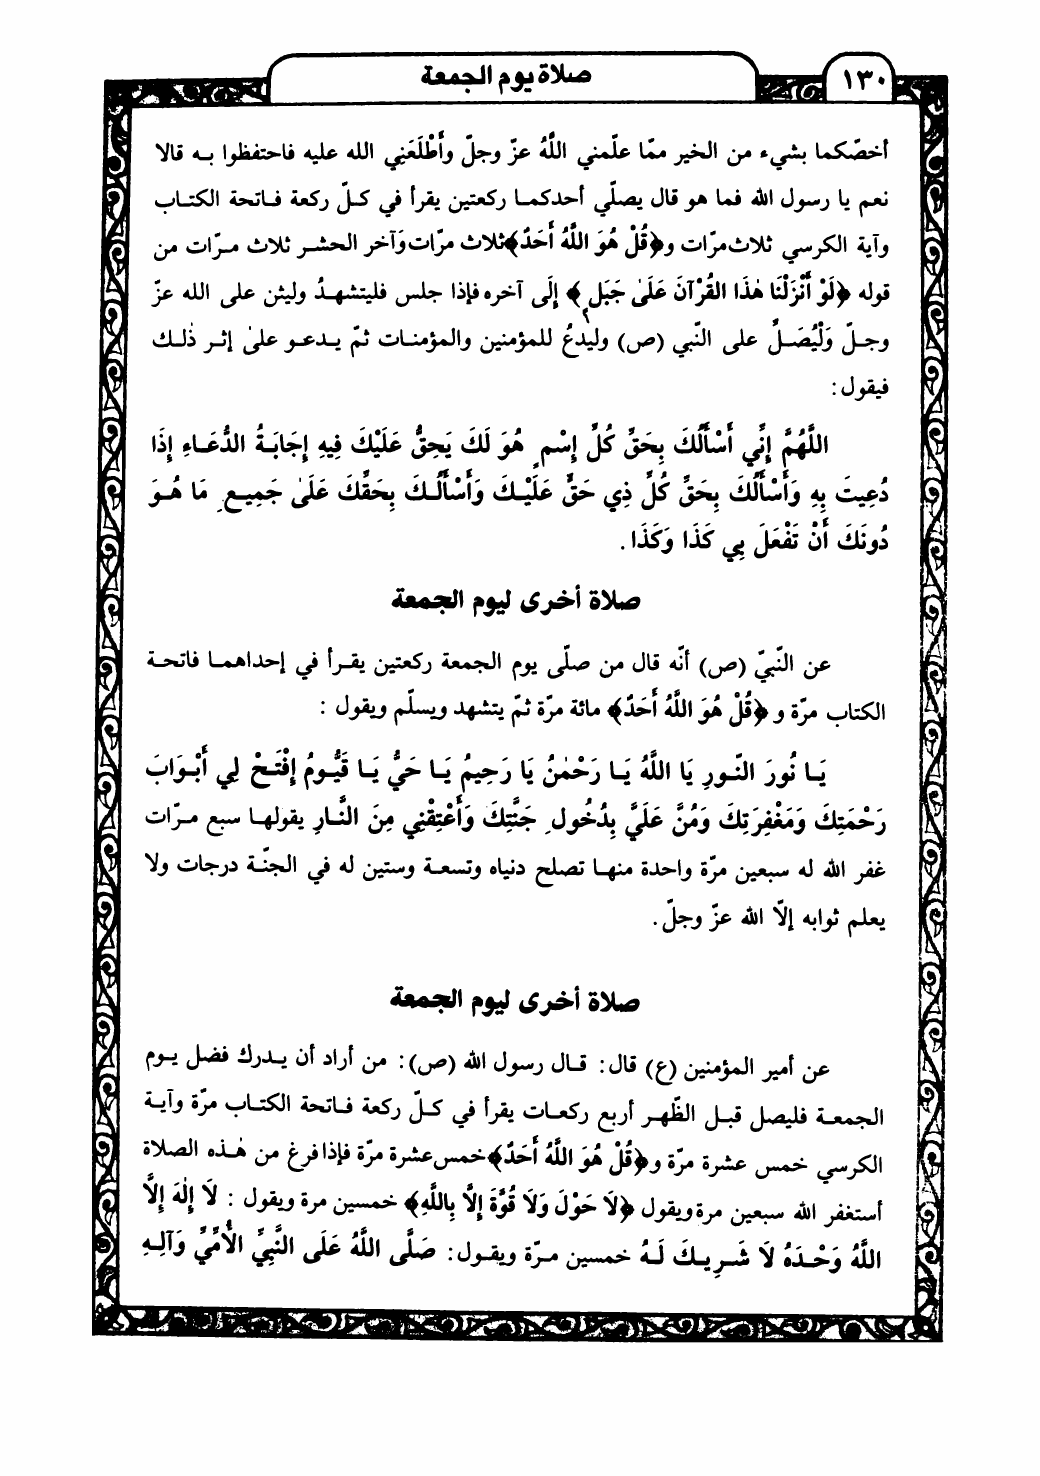 صلاة يوم الجمعة
١٣٠
أخصّكما بشيء من الخير ممّا علّمني اللَّهُ عزّ وجلّ وأَطْلَعَنِي الله عليه فاحتفظوا به قالا
نعم يا رسول الله فما هو قال يصلّي أحدكما ركعتين يقرأ في كلّ ركعة فاتحة الكتاب
وآية الكرسي ثلاث مرّات و﴿قُلْ هُوَ اللَّهُ أَحَدٌ﴾ ثلاث مرّات وَآخر الحشر ثلاث مرّات من
قوله ﴿لَوْ أَنْزَلْنَا هٰذَا القُرْآنَ عَلَىٰ جَبَلٍ﴾ إِلَى آخره فإذا جلس فليتشهدْ وليثن على الله عزّ
وجلّ وَلْيُصَلِّ على النّبي (ص) وليدعُ للمؤمنين والمؤمنات ثمّ يدعو علىٰ إثر ذٰلك
فيقول :
اللَّهُمَّ إِنِّي أَسْأَلُكَ بِحَقِّ كُلِّ إِسْمٍ هُوَ لَكَ يَحِقُّ عَلَيْكَ فِيهِ إِجَابَةُ الدُّعَاءِ إِذَا
دُعِيتَ بِهِ وَأَسْأَلُكَ بِحَقِّ كُلِّ ذِي حَقٍّ عَلَيْكَ وَأَسْأَلُكَ بِحَقِّكَ عَلَىٰ جَمِيعِ مَا هُوَ
دُونَكَ أَنْ تَفْعَلَ بِي كَذَا وَكَذَا .
صلاة أخرى ليوم الجمعة
عن النّبيّ (ص) أنّه قال من صلّى يوم الجمعة ركعتين يقرأ في إحداهما فاتحة
الكتاب مرّة و ﴿قُلْ هُوَ اللَّهُ أَحَدٌ﴾ مائة مرّة ثمّ يتشهد ويسلّم ويقول :
يَا نُورَ النّورِ يَا اللَّهُ يَا رَحْمٰنُ يَا رَحِيمُ يَا حَيُّ يَا قَيُّومُ إِفْتَحْ لِي أَبْوَابَ
رَحْمَتِكَ وَمَغْفِرَتِكَ وَمُنَّ عَلَيَّ بِدُخُولِ جَنَّتِكَ وَأَعْتِقْنِي مِنَ النَّارِ يقولها سبع مرّات
غفر الله له سبعين مرّة واحدة منها تصلح دنياه وتسعة وستين له في الجنّة درجات ولا
يعلم ثوابه إلاّ الله عزّ وجلّ .
صلاة أخرى ليوم الجمعة
عن أمير المؤمنين (ع) قال : قال رسول الله (ص) : من أراد أن يدرك فضل يوم
الجمعة فليصل قبل الظّهر أربع ركعات يقرأ في كلّ ركعة فاتحة الكتاب مرّة وآية
الكرسي خمس عشرة مرّة و﴿قُلْ هُوَ اللَّهُ أَحَدٌ﴾ خمس عشرة مرّة فإذا فرغ من هٰذه الصلاة
أستغفر الله سبعين مرة ويقول ﴿لاَ حَوْلَ وَلاَ قُوَّةَ إِلاَّ بِاللَّهِ﴾ خمسين مرة ويقول : لاَ إِلٰهَ إِلاَّ
اللَّهُ وَحْدَهُ لاَ شَرِيكَ لَهُ خمسين مرّة ويقول : صَلَّى اللَّهُ عَلَى النَّبِيِّ الأُمِّيِّ وَآلِهِ